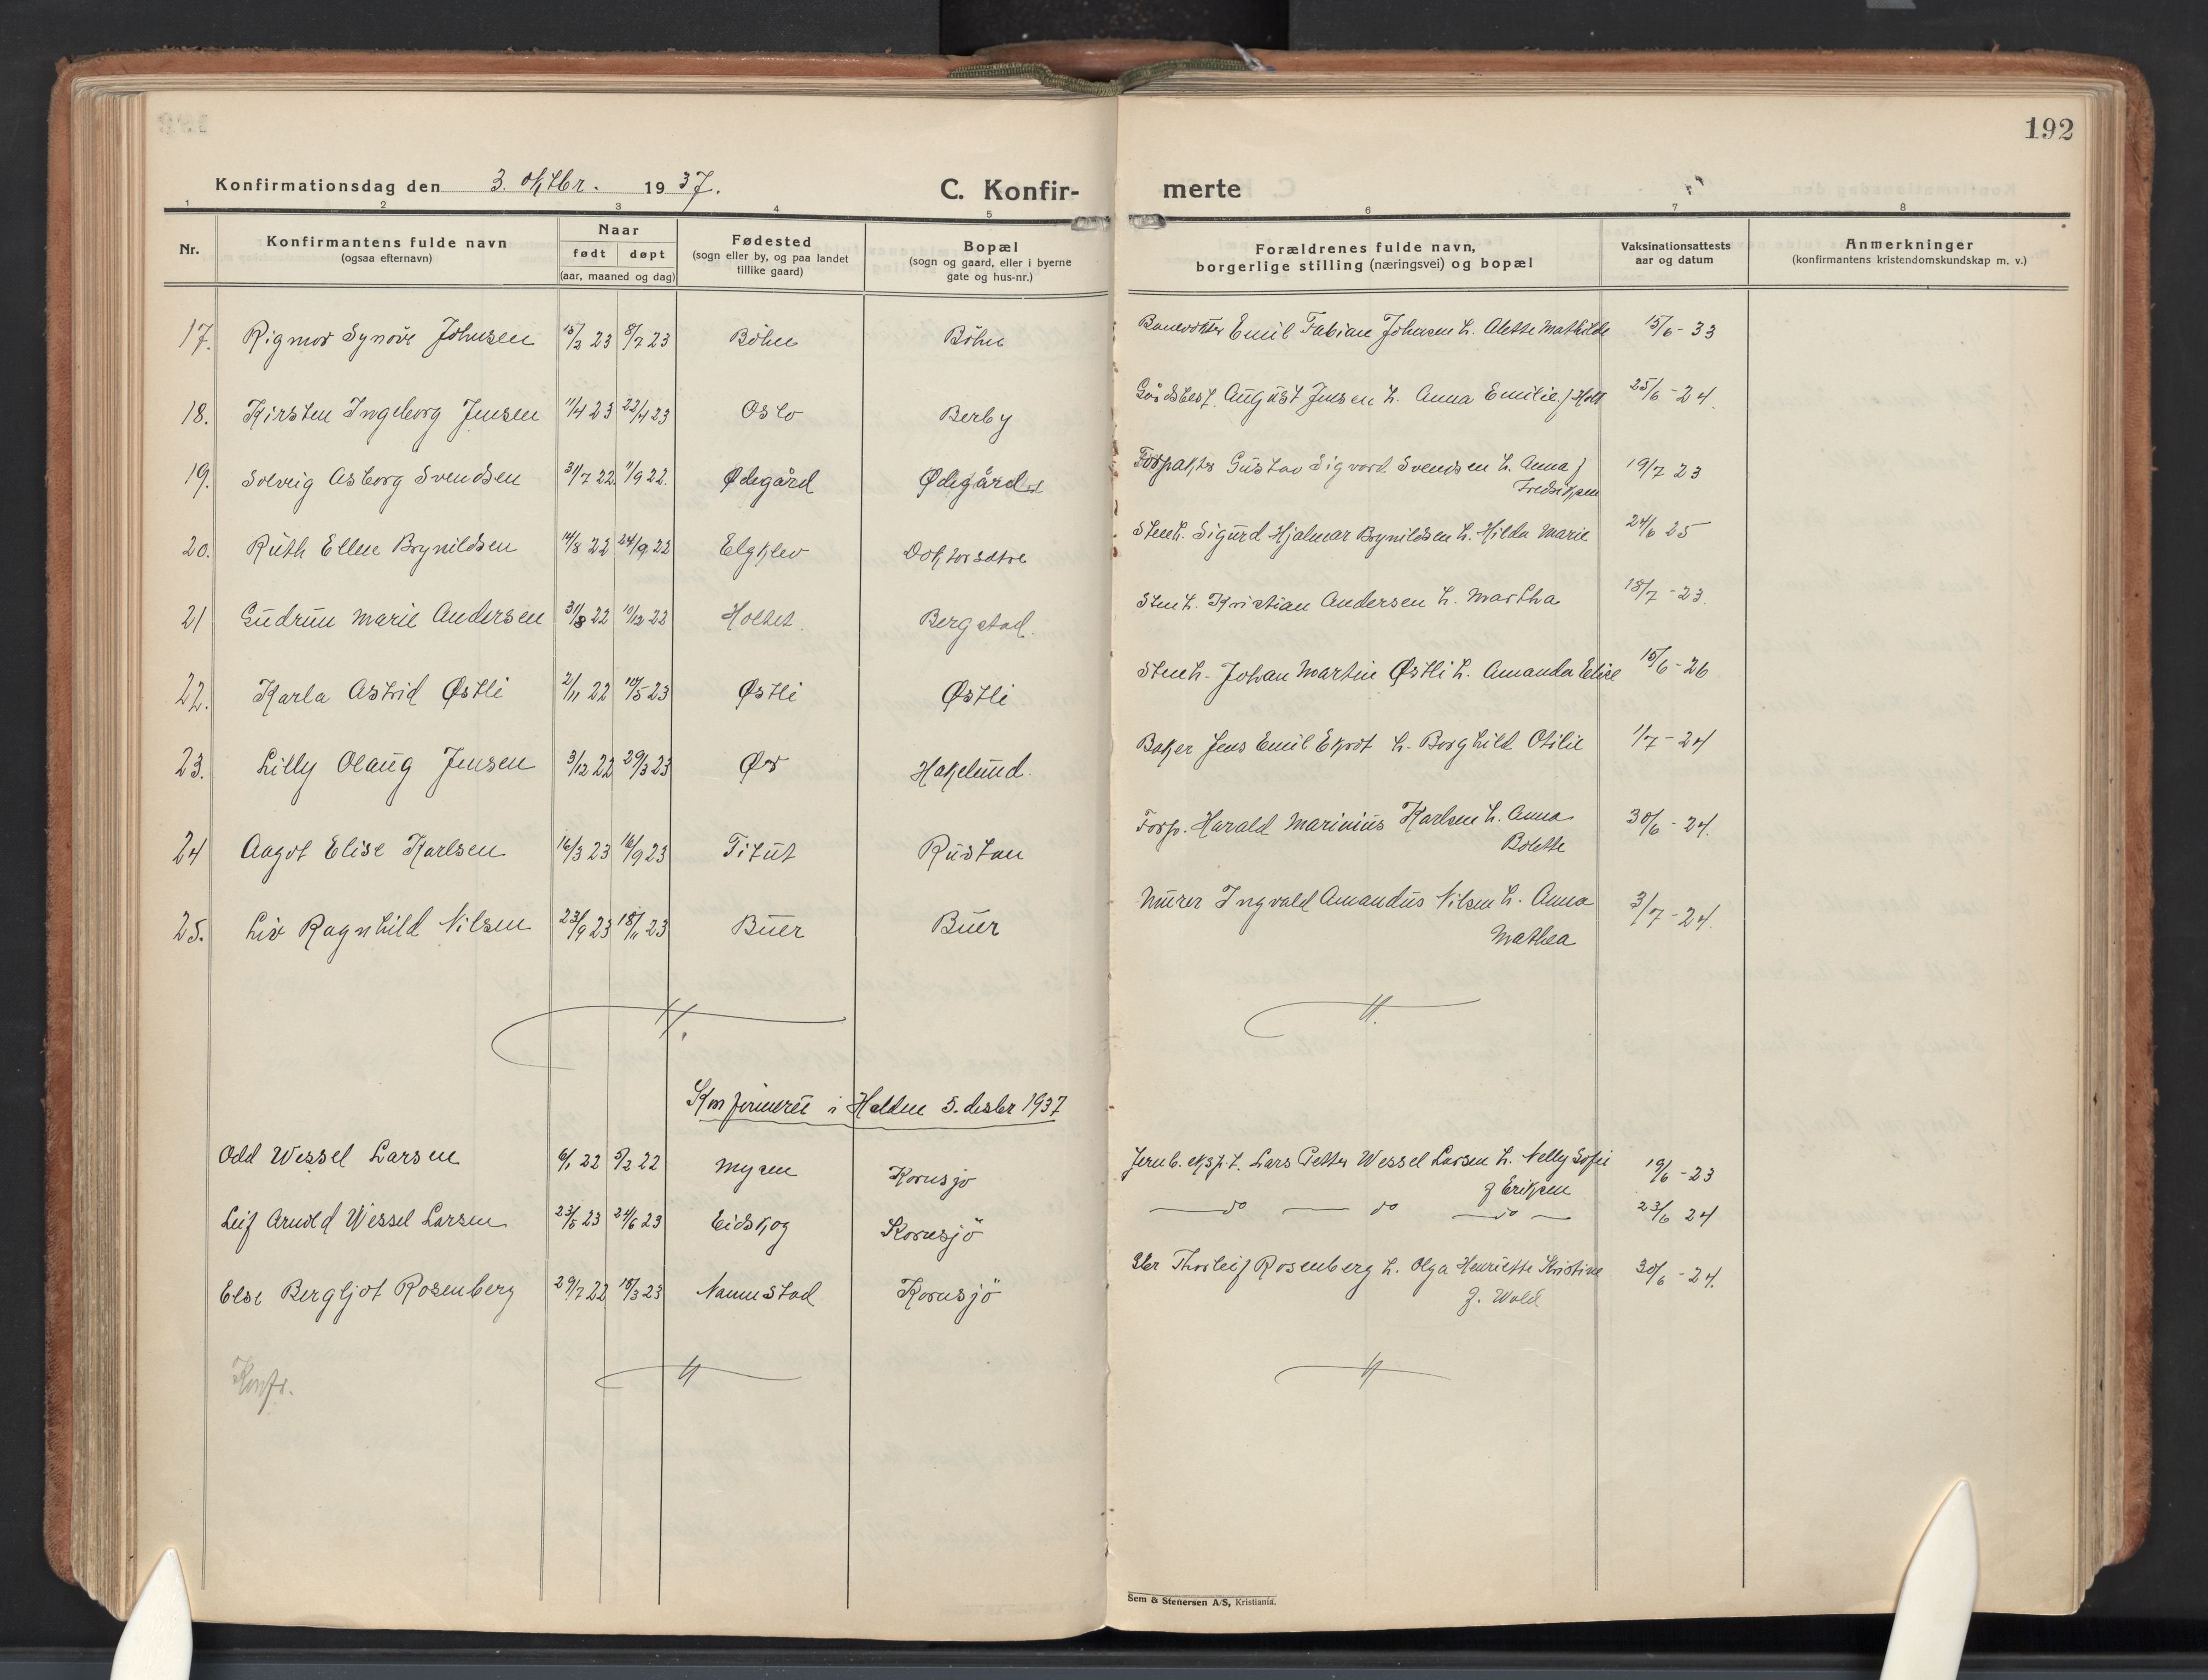 192
Konfirmationsdag den 3. oktbr. 1937.
C. Konfir- merte
1 2 3 4 5 6 7 8
Nr.
Konfirmantens fulde navn
(ogsaa efternavn)
Naar
født døpt
(aar, maaned og dag)
Fødested
(sogn eller by, og paa landet
tillike gaard)
Bopæl
(sogn og gaard, eller i byerne
gate og hus-nr.)
Forældrenes fulde navn,
borgerlige stilling (næringsvei) og bopæl
Vaksinationsattests
aar og datum
Anmerkninger
(konfirmantens kristendomskundskap m. v.)
17. Rigmor Synöve Johnsen 15/2 23 8/7 23 Böhn Böhn Banevokter Emil Fabian Johnsen h. Alette Mathilde 15/6 - 33
18. Kirsten Ingeborg Jensen 11/4 23 22/4 23 Oslo Berby Gårdsbest. August Jensen h. Anna Emilie f Holt 25/6 - 24.
19. Solveig Asborg Svendsen 31/7 22 1/9 22. Ødegård Ødegård Forpakter Gustav Sigvard Svendsen h. Anna f 19/7 23
Fredriksen
20. Ruth Ellen Brynildsen 14/8 22 24/9 22 Elgklev Doktorsætre Stenh. Sigurd Hjalmar Brynildsen h. Hilda Marie 24/6 25
21 Gudrun Marie Andersen 31/8 22 10/12 22 Holtet. Bergstad. Stenh. Kristian Andersen h. Martha 18/7 - 23.
22. Karla Astrid Østli 2/11 22 10/5 23 Østli Østli Stenh. Johan Martin Østli h. Amanda Elise 15/6 - 26
23. Lilly Olaug Jensen 3/12 22 29/3 23 Ør Hakelund. Baker Jens Emil Ekrot h. Borghild Otilie 1/7 - 24
24 Aagot Elise Karlsen 16/3 23 16/9 23 Titut Rustan Forp. Harald Marinius Karlsen h. Anna 30/6 - 24.
Bolette
25. Liv Ragnhild Nilsen 23/9 23 18/11 23 Buer Buer Murer Ingvald Amandus Nilsen h. Anna 3/7 - 24.
Mathea
Konfirmert i Halden 5. desbr 1937
Odd Wessel Larsen 6/1 22 5/2 22 Mysen Kornsjø Jernb. eksp. t. Lars Petter Wessel Larsen h. Nelly Sofie 19/6 - 23
f Eriksen
Leif Arnold Wessel Larsen 23/5 23 24/6 23 Eidskog Kornsjö — do — do — do — 23/6 24
Else Bergljot Rosenberg 29/7 22 18/3 23 Nannestad Kornsjö Thorleif Rosenberg h. Olga Henriette Kristine 30/6 - 24.
f. Wold
Konfr.
Sem & Stenersen A/S, Kristiania.